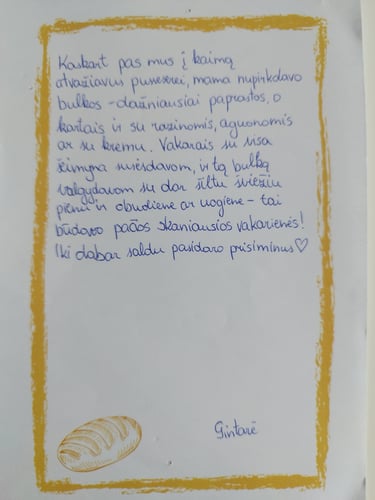 Kaskart pas mus į kaimą
atvažiavus pusseserei, mama nupirkdavo
bulkos - dažniausiai paprastos, o
kartais ir su razinomis, aguonomis
ar su kremu. Vakarais su visa
šeimyna susėsdavom, ir tą bulką
valgydavom su dar šiltu šviežiu
pienu ir obuoliene ar uogiene - tai
būdavo pačios skaniausios vakarienės!
Iki dabar saldu pasidaro prisiminus♡
Gintarė